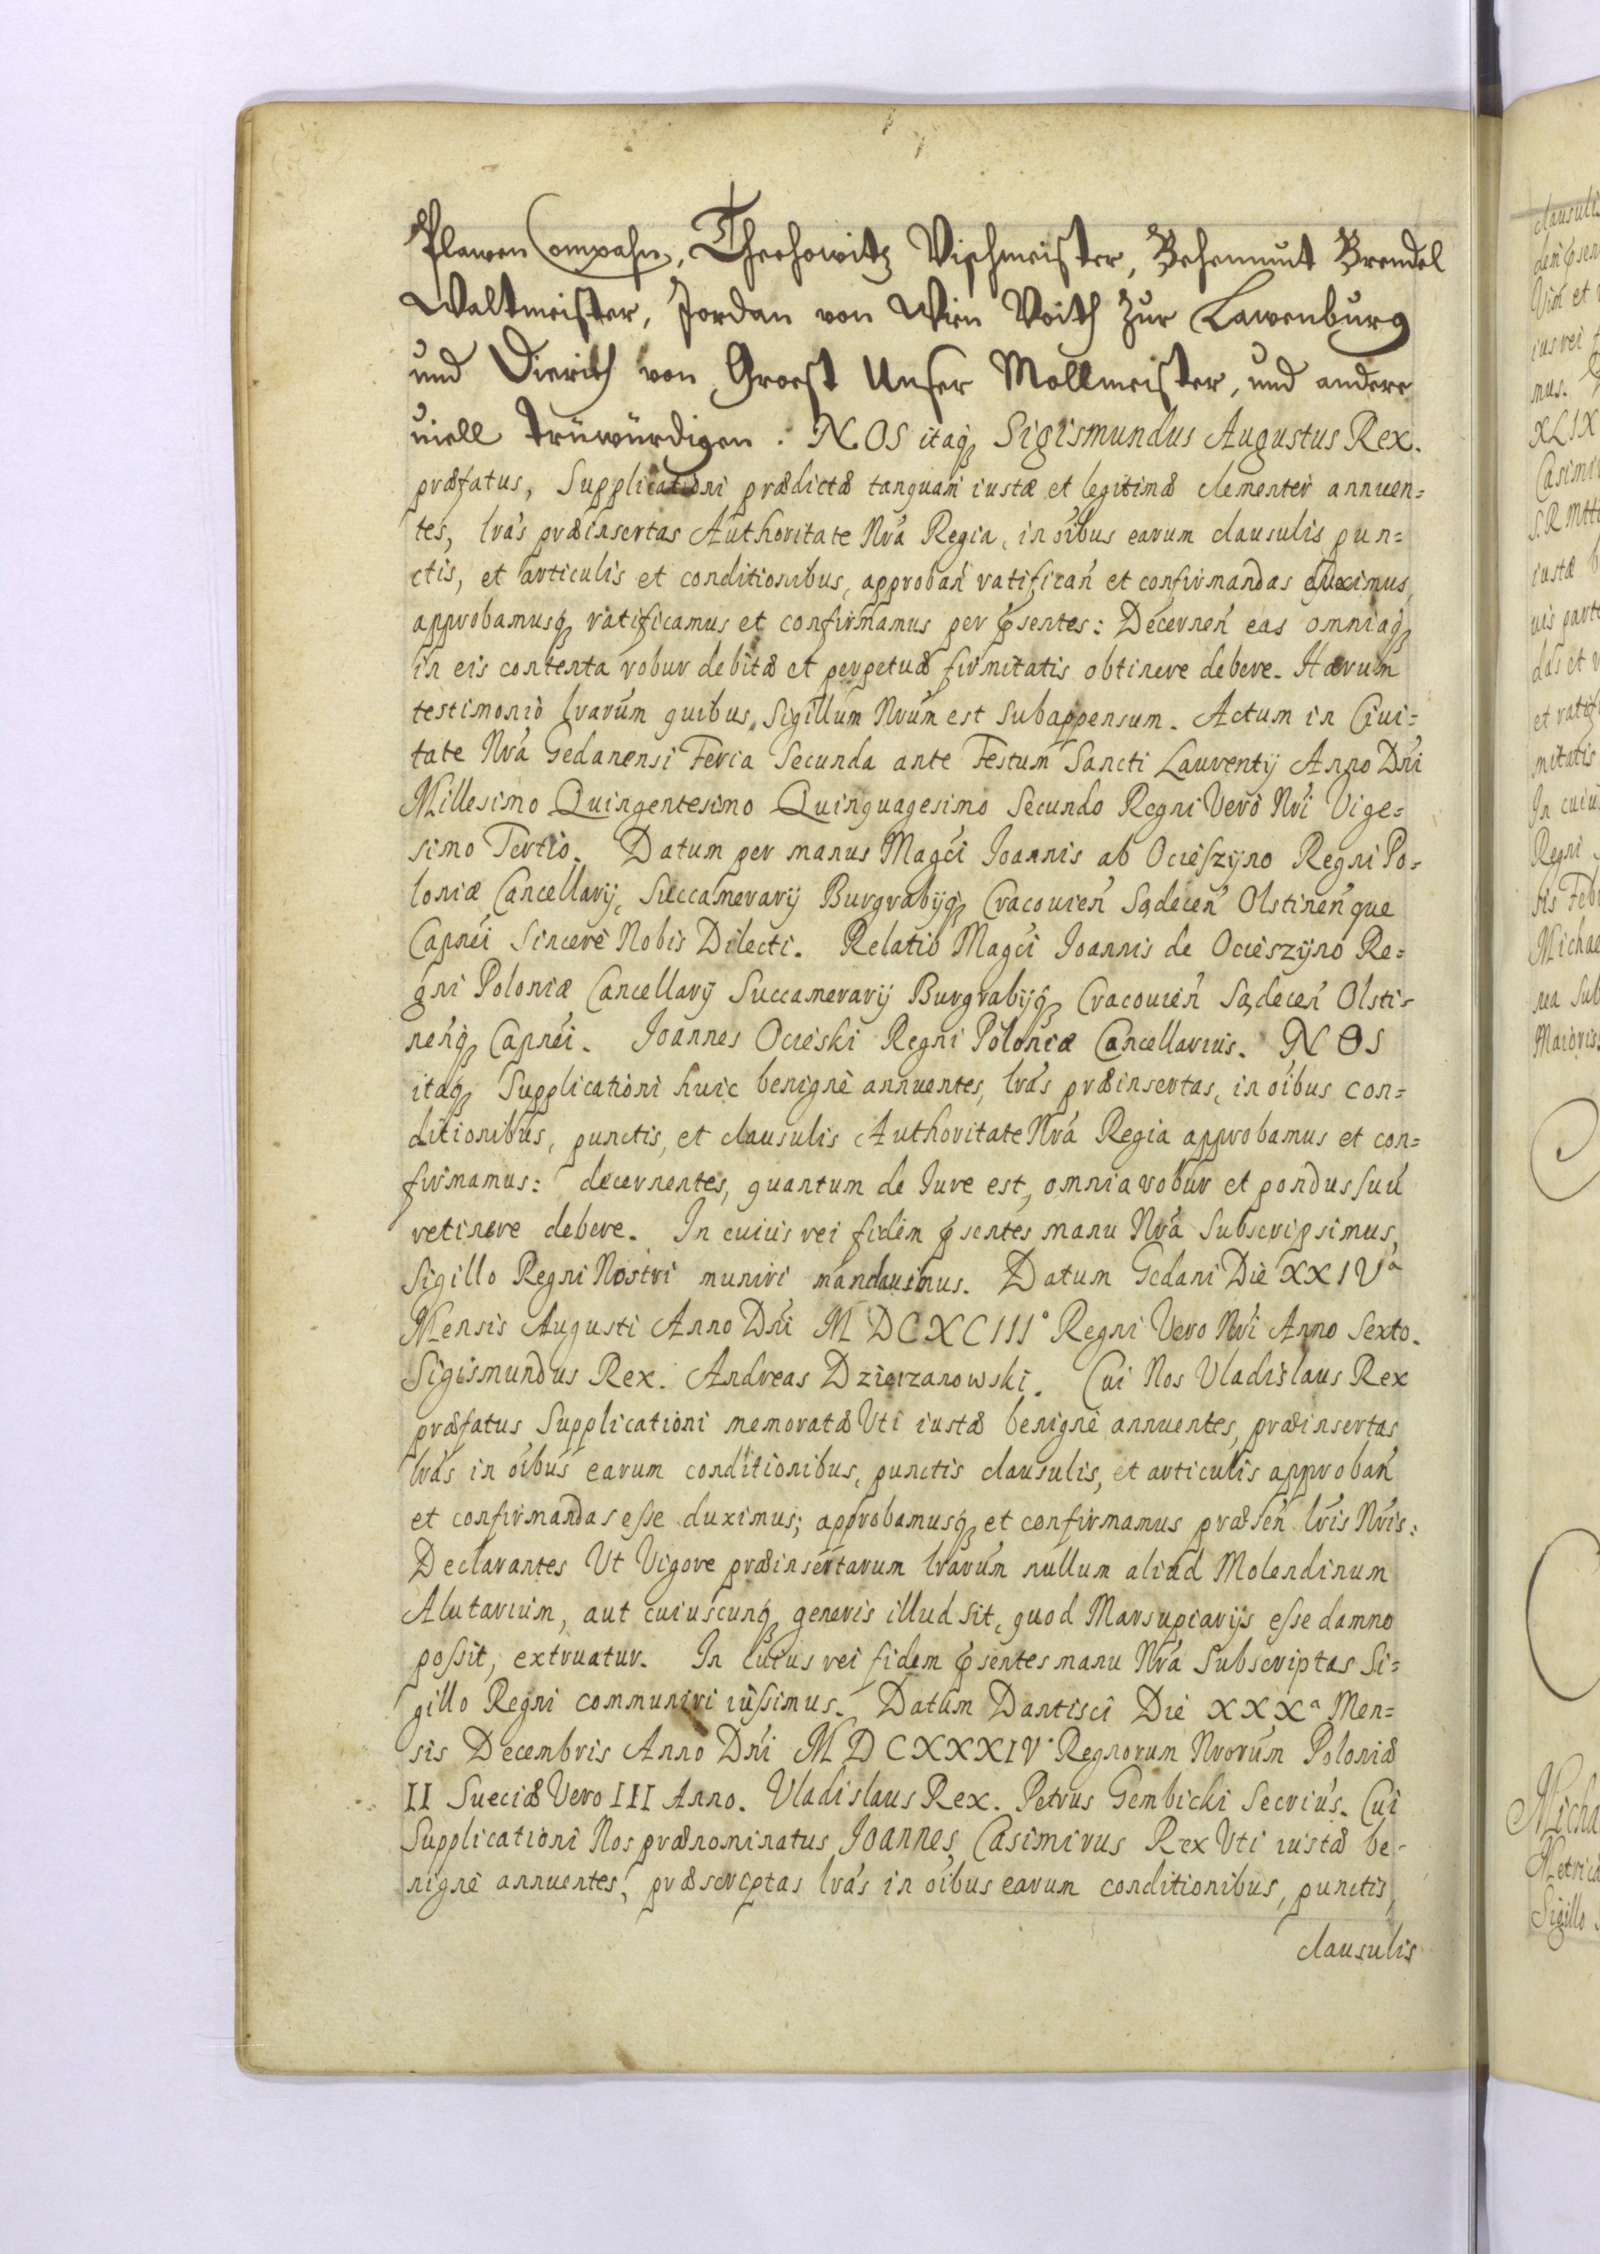 Plawen Compahn, Thechowitz Vischmeister, Behemunt Brendel
Waltmeister, Jordan von Wien Voith zur Lawenburg
und Dierich von Groest Unser Mollmeister, und andere
viell trüwürdigen. NOS itaqꝫ Sigismundus Augustus Rex.
præfatus, Supplicationi prædictæ tanquam iustæ et legitimæ clementer annuen=
tes, lrás præinsertas Authoritate Nrá Regia, in oibus earum clausulis pun=
ctis, et articulis et conditionibus, approbań ratifican̂ et confirmandas duximus,
approbamusqꝫ ratificamus et confirmamus per pŝentes: Decerneń eas omniaqꝫ
in eis contenta robur debitæ et perpetuæ firmitatis obtinere debere. Harum
testimonio lrarúm quibus Sigillum Nrúm est subappensum. Actum in Ciui=
tate Nrá Gedanensi Feria Secunda ante Festum Sancti Laurentij Anno Dńi
Millesimo Quingentesimo Quinquagesimo Secundo Regni Vero Nrí Vige=
simo Tertio. Datum per manus Magći Ioannis ab Ocieszyno Regni Po=
loniæ Cancellarij, Succamerarij Burgrabijqꝫ Cracouień Sądeceń Olstineńque
Capnéi Sincerè Nobis Dilecti. Relatio Magći Ioannis de Ocieszyno Re=
gni Poloniæ Cancellarij Succamerarij Burgrabijqꝫ Cracouień Sądeceń Olsti=
neńqꝫ Capnéi. Ioannes Ocieski Regni Poloniæ Cancellarius. NOS
itaqꝫ Supplicationi huic benignè annuentes, lrás præinsertas, in oíbus con=
ditionibus, punctis, et clausulis Authoritate Nrá Regia approbamus et con=
firmamus: decernentes, quantum de Iure est, omnia robur et pondus suú
retinere debere. In cuius rei fidem pŝentes manu Nrá Subscripsimus,
Sigillo Regni Nostri muniri mandauimus. Datum Gedani Die XXIVa
Mensis Augusti Anno Dńi MDCXCIII° Regni Vero Nrí Anno Sexto.
Sigismundus Rex. Andreas Dzierzanowski. Cui Nos Vladislaus Rex
præfatus Supplicationi memoratæ Uti iustæ benignè annuentes, præinsertas
lrás in oíbus earum conditionibus, punctis clausulis, et articulis approbań
et confirmandas esse duximus; approbamusqꝫ et confirmamus præseń lrís Nrís:
Declarantes Ut Vigore præinsertarum lrarúm nullum aliud Molendinum
Alutarium, aut cuiuscunqꝫ generis illud sit, quod Marsupiarijs esse damno
possit, extruatur. In cuius rei fidem pŝentes manu Nrá Subscriptas Si=
gillo Regni communiri iussimus. Datum Dantisci Die XXXa Men=
sis Decembris Anno Dńi MDCXXXIV° Regnorum Nrorúm Poloniæ
II Sueciæ Vero III Anno. Vladislaus Rex. Petrus Gembicki Secriús. Cui
Supplicationi Nos prænominatus Ioannes Casimirus Rex Uti iustæ be-
nignè annuentes, præscriptas lrás in oíbus earum conditionibus, punctis,
clausulis